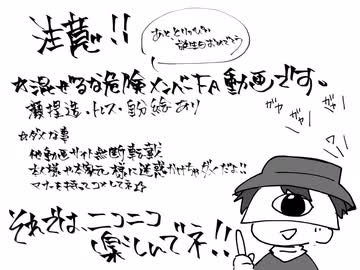 注意!!
あと、とりっぴぃ
誕生日おめでとう
☆混ぜるな危険メンバーFA動画です。
顔捏造・トレス・自分絵あり
☆ダメな事
他動画サイト無断転載
本人様や本家元様に迷惑かけちゃダメだよ!!
マナーを持ってコメしてネ☆
ガヤ ガヤ!
それでは、ニコニコ
楽しんでネ!!